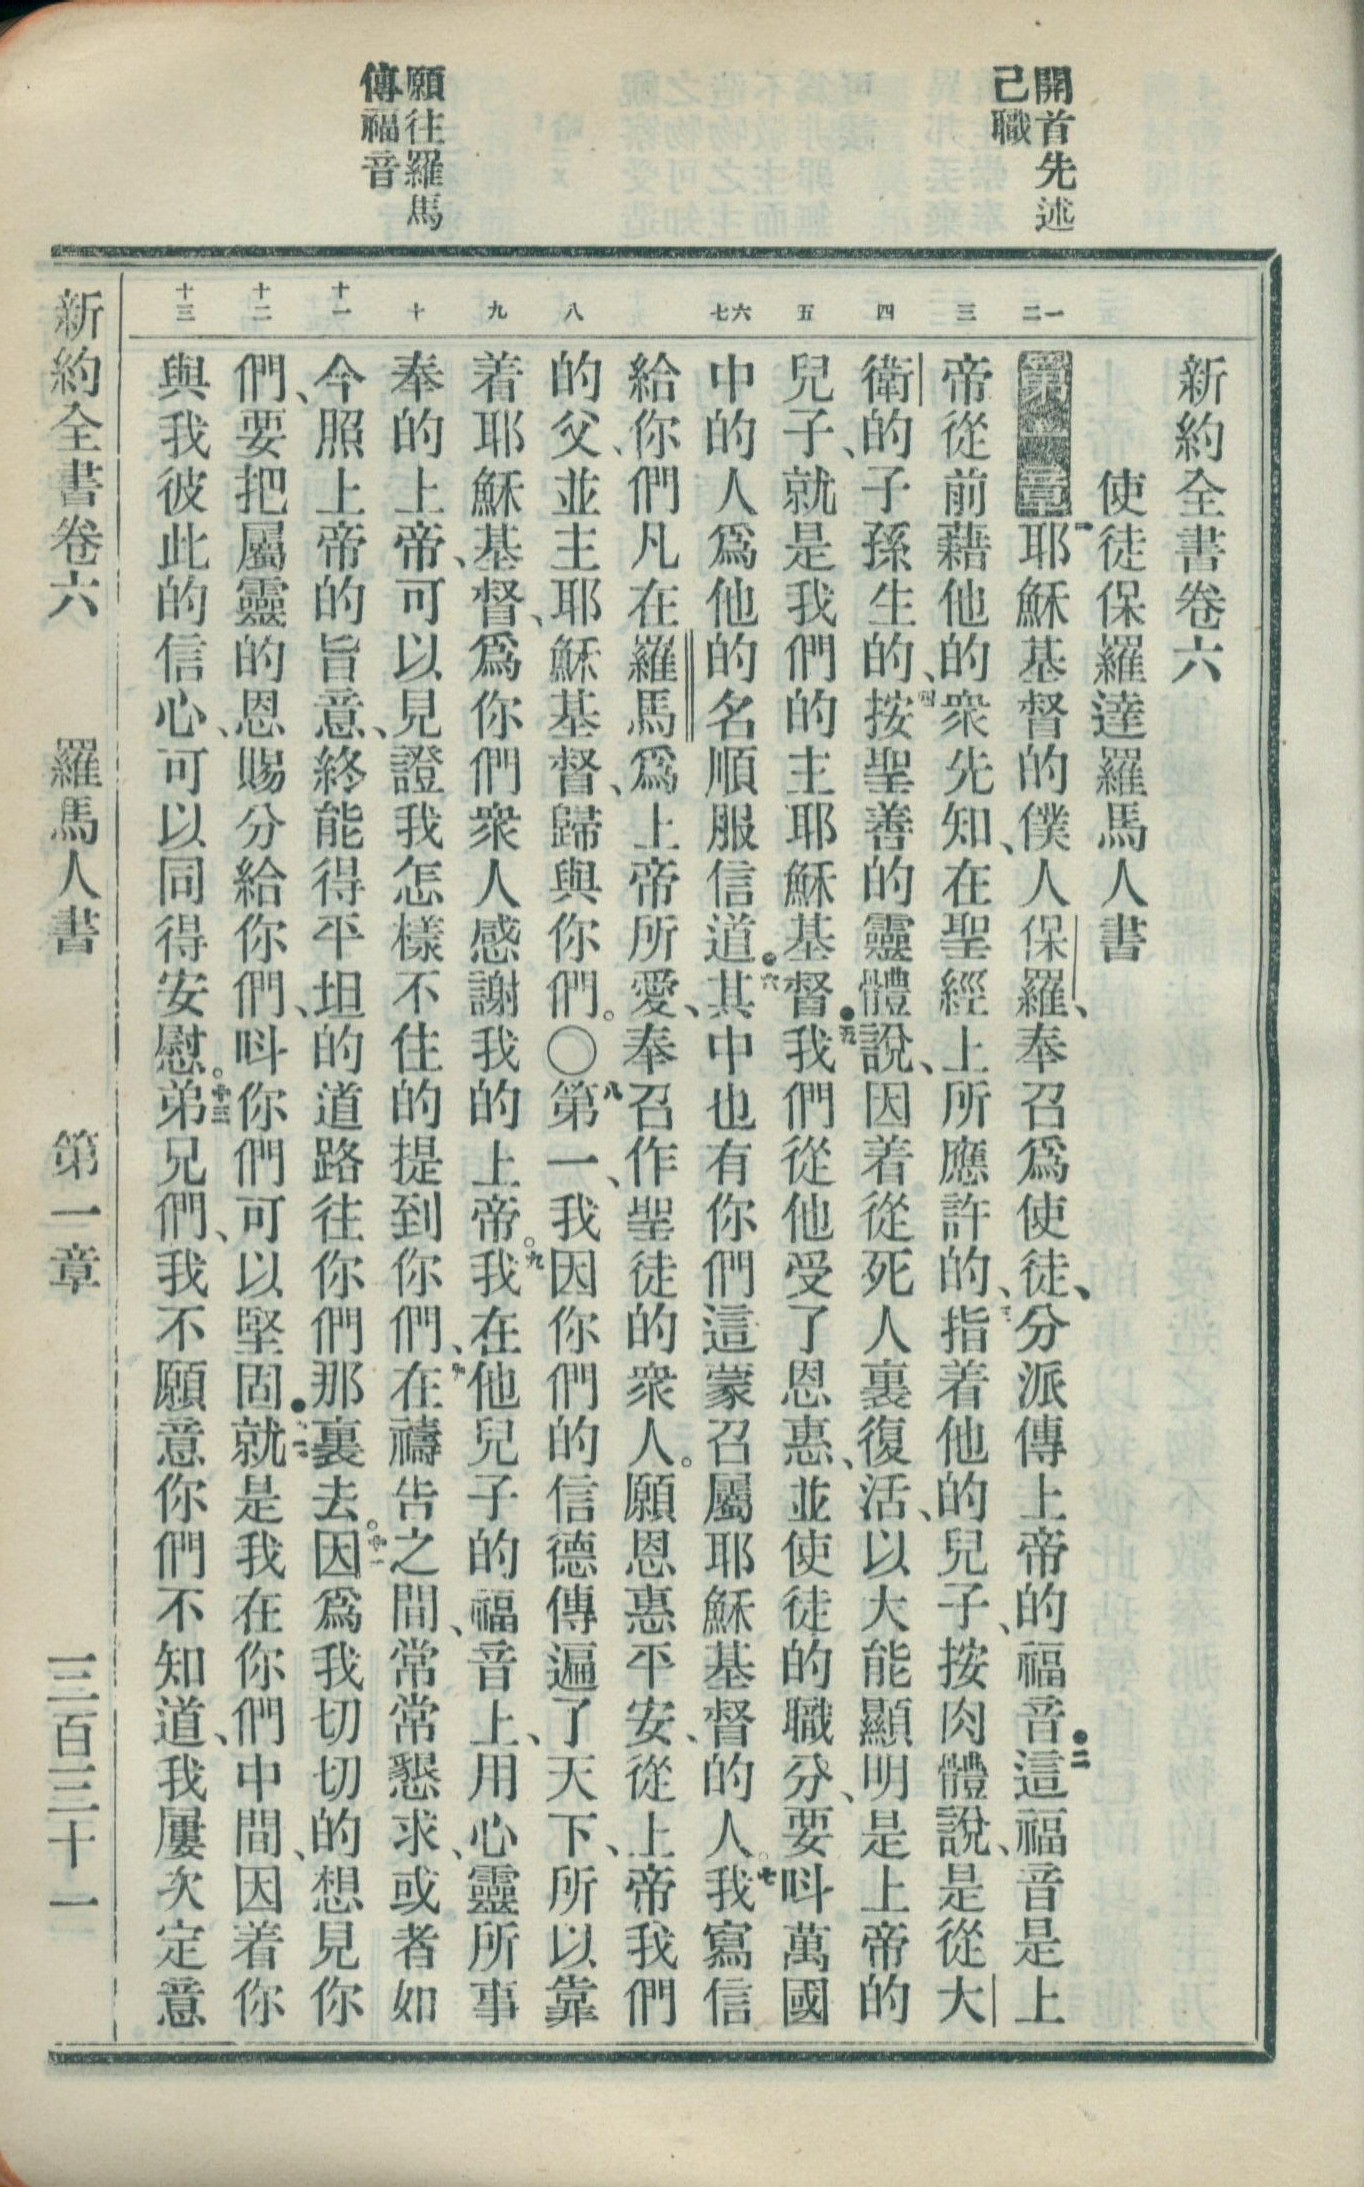 開首先述
己職
願往羅馬
傳福音
一 二 三 四 五 六 七 八 九 十 十一 十二 十三
新約全書卷六
使徒保羅達羅馬人書
第一章 一耶穌基督的僕人保羅、奉召爲使徒、分派傳上帝的福音・二這福音是上
帝從前藉他的衆先知、在聖經上所應許的、三指着他的兒子、按肉體說、是從大
衛的子孫生的、四按聖善的靈體說、因着從死人裏復活、以大能顯明是上帝的
兒子、就是我們的主耶穌基督・五我們從他受了恩惠、並使徒的職分、要呌萬國
中的人爲他的名順服信道・六其中也有你們這蒙召屬耶穌基督的人。七我寫信
給你們凡在羅馬爲上帝所愛、奉召作聖徒的衆人。願恩惠平安、從上帝我們
的父、並主耶穌基督、歸與你們。〇八第一、我因你們的信德傳遍了天下、所以靠
着耶穌基督、爲你們衆人感謝我的上帝。九我在他兒子的福音上、用心靈所事
奉的上帝、可以見證我怎樣不住的提到你們、十在禱告之間、常常懇求、或者如
今照上帝的旨意、終能得平坦的道路往你們那裏去。十一因爲我切切的想見你
們、要把屬靈的恩賜分給你們、呌你們可以堅固・十二就是我在你們中間、因着你
與我彼此的信心、可以同得安慰。十三弟兄們、我不願意你們不知道、我屢次定意
新約全書卷六 羅馬人書 第一章 三百三十一